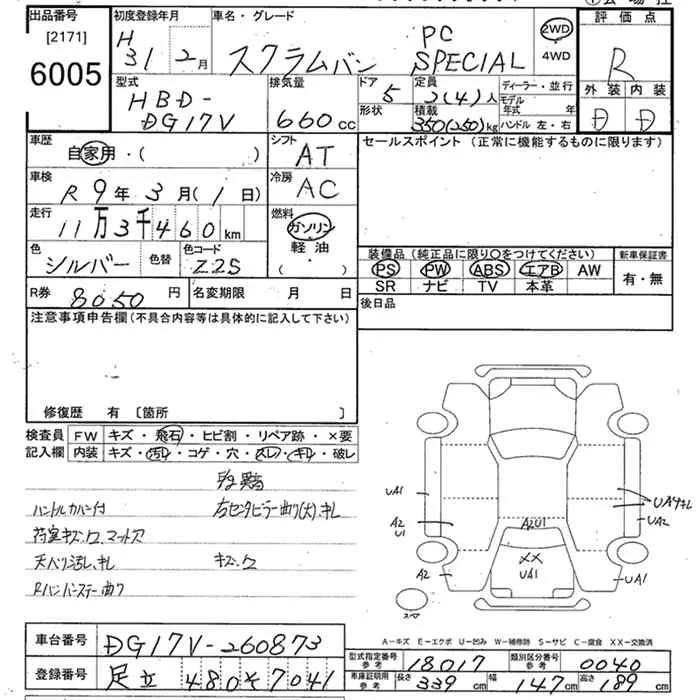 出品番号 初度登録年月 車名・グレード 評価点
[2171] H 31年 2月 スクラムバン PC SPECIAL 2WD ・4WD R
6005
型式 排気量 ドア 定員 ディーラー・並行 外装 内装
HBD-DG17V 660cc 5 2(4)人 モデル年式 年 D D
形状 積載 350(250)kg ハンドル 左・右
車歴 シフト セールスポイント (正常に機能するものに限ります)
自家用・( ) AT
車検 冷房
R9年3月(1日) AC
走行 燃料
11万3千460km ガソリン
軽油
・( )
色 色替 色コード
シルバー Z2S
装備品 (純正品に限り○をつけてください) 新車保証書
PS PW ABS エアB AW 有・無
SR ナビ TV 本革
R券 8050円 名変期限 月 日 後日品
注意事項申告欄 (不具合内容等は具体的に記入して下さい)
修復歴 有 〔箇所 〕
検査員 FW キズ・飛石・ヒビ割・リペア跡・×要
記入欄 内装 キズ・汚れ・コゲ・穴・スレ・キレ・破レ
ハンドルカバー付 右センタピラー曲り(大)、キレ
荷室キズ、ワ、マット欠
天ベリ汚レ、キレ キズ、ワ
Rバンパーステー曲り
UA1 A2 U1 A2 A2U1 ×× UA1 UA2 UA1
A―キズ E―エクボ U―凹み W―補修跡 S―サビ C―腐食 XX―交換済
車台番号 DG17V-260873
登録番号 足立 480そ7041
型式指定番号 参考 18017 類別区分番号 参考 0040
車庫証明用 参考 長さ 339cm 幅 147cm 高さ 189cm